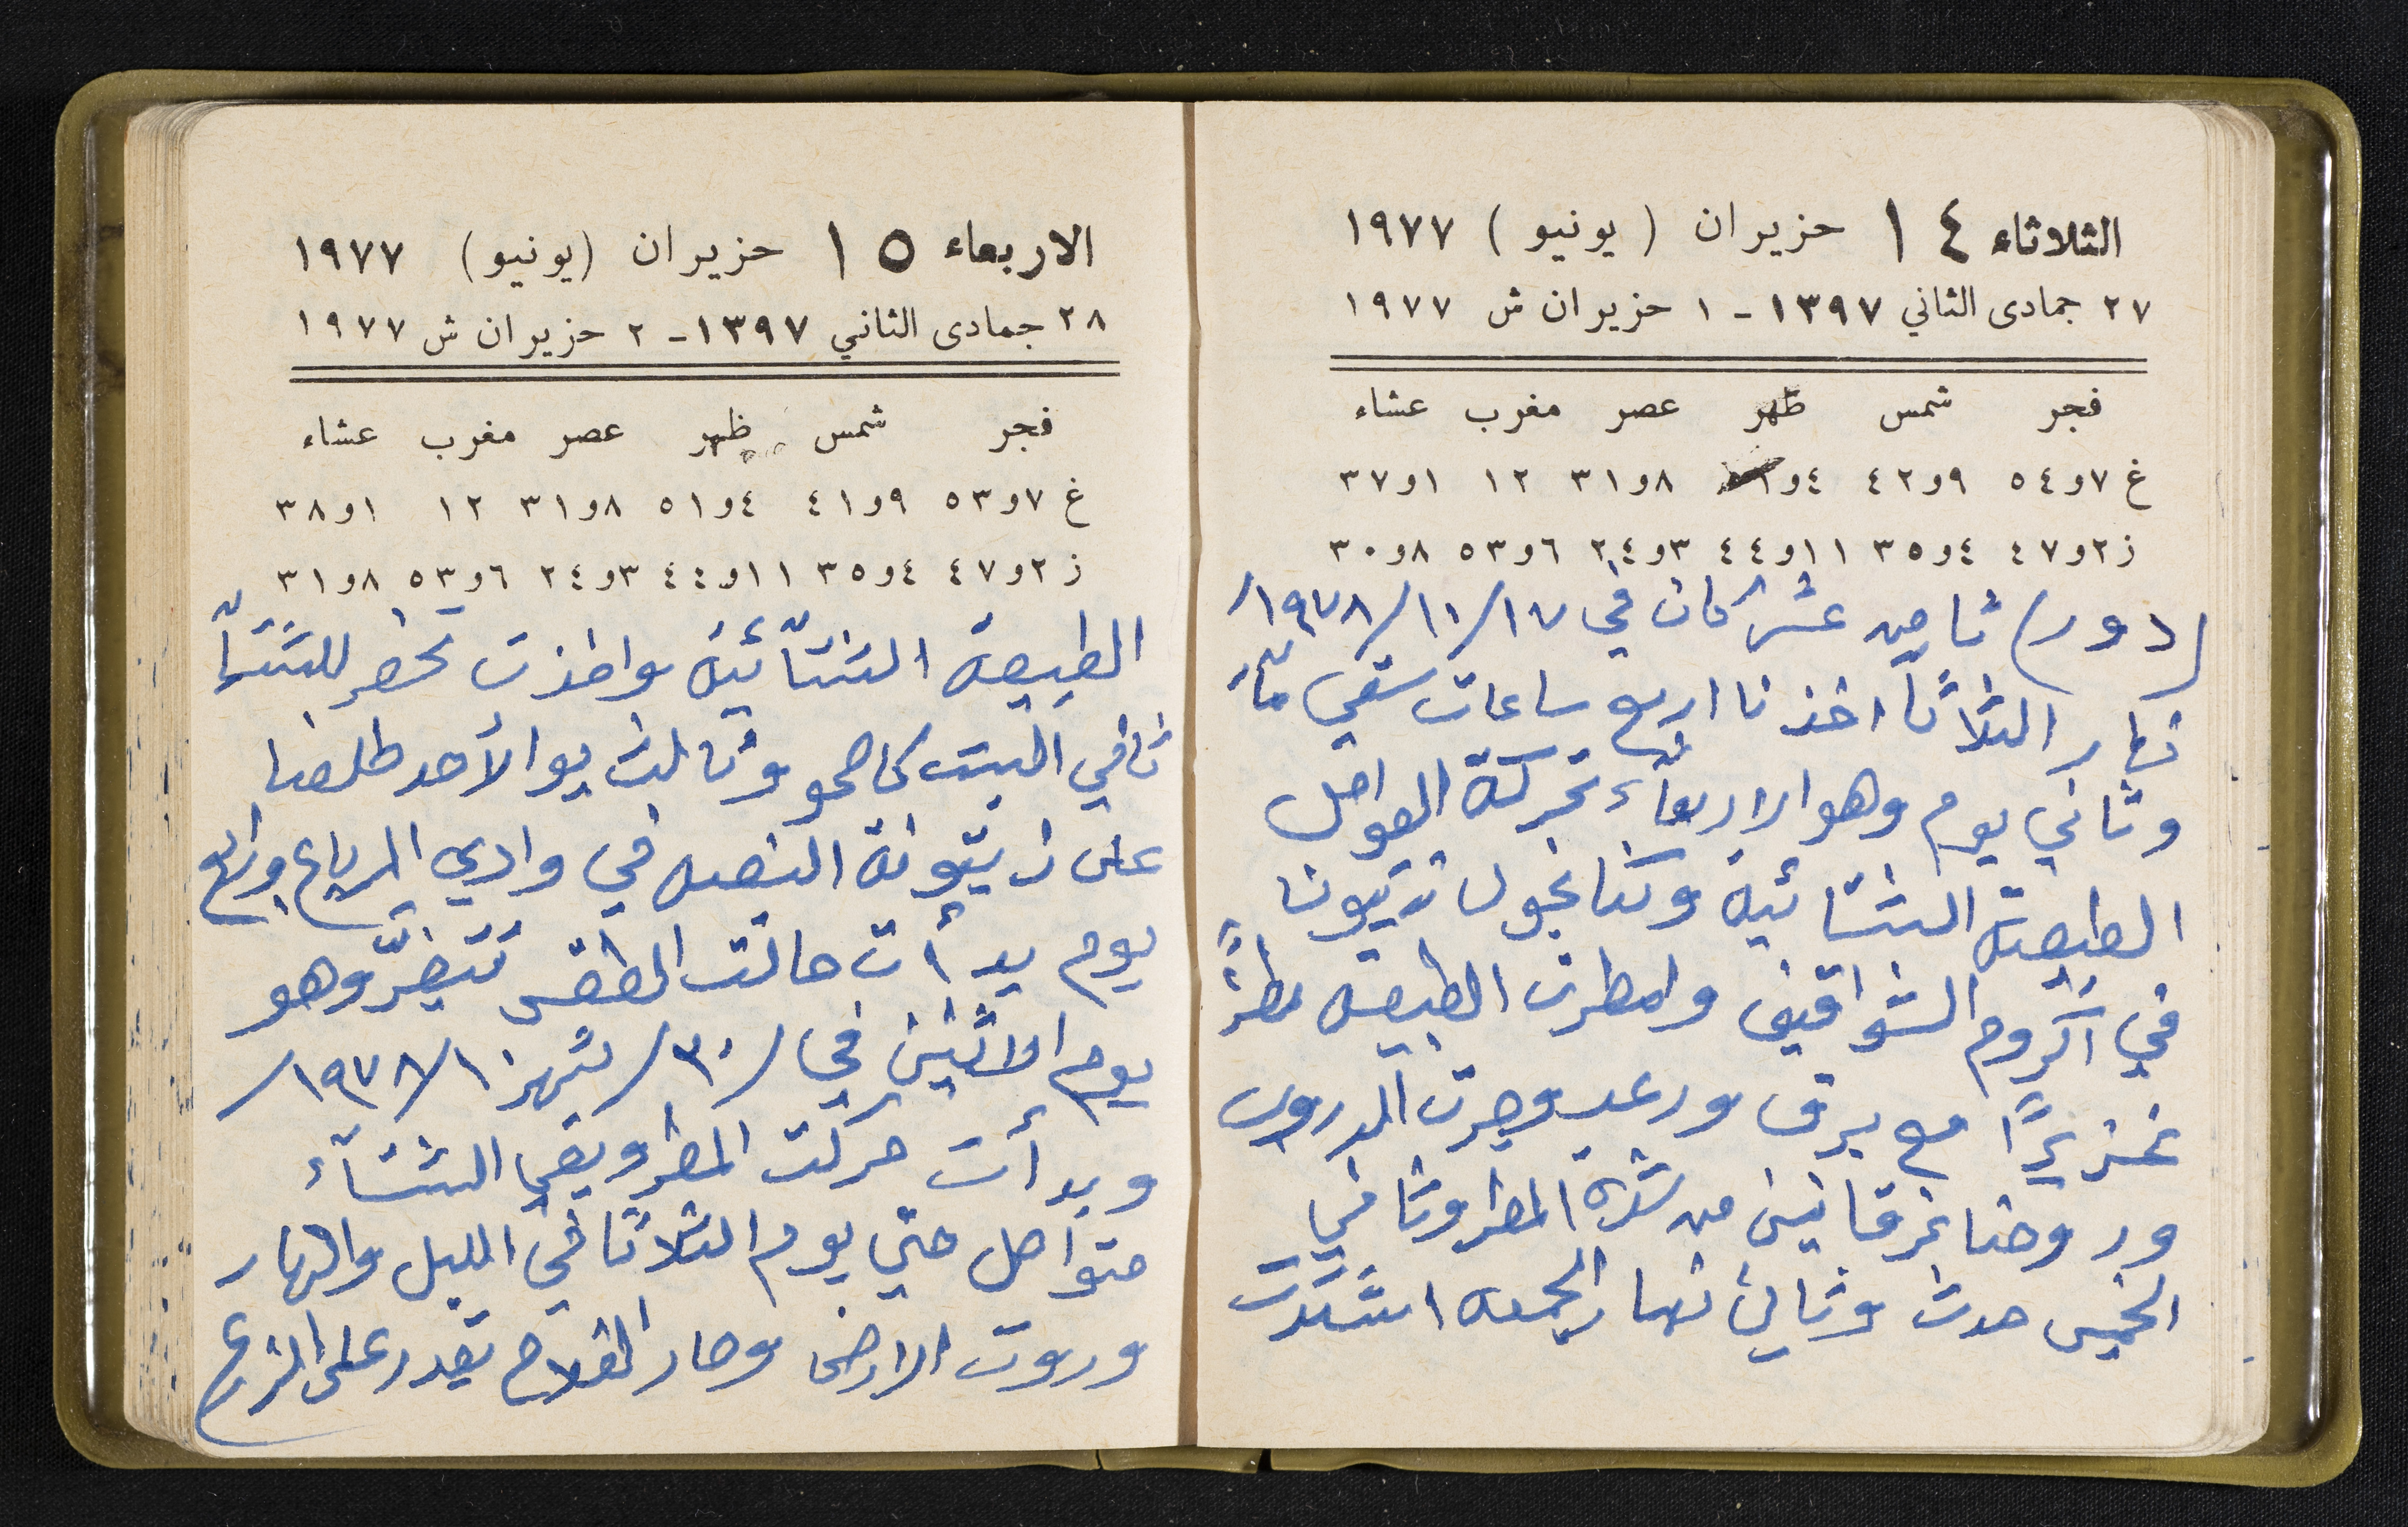 الثلاثاء ١٤ حزيران ( يونيو ) ١٩٧٧
٢٧ جمادى الثاني ١٣٩٧ - ١ حزيران ش ١٩٧٧
فجر شمس ظهر عصر مغرب عشاء
غ ٧و٥٤ ٩و٤٢ ٤و ٨و٣١ ١٢ ١و٣٧
ز ٢و٤٧ ٤و٣٥ ١١و٤٤ ٣و٢٤ ٦و٥٣ ٨و٣٠
(دور) ثامن عشر كان في ١٧/١٠/١٩٧٨/
نهار الثلاثا اخذنا اربع ساعات سقي مآء
وثاني يوم وهو الاربعآء تحركة العوامل
الطبيعة الشتائية وكنا نجول زتيونا
في اكروم الشواقيف وامطرت الطبيعه مطرًا
غزيرًا مع برق ورعد وجرت الدروب
وروحنا غرقانين من شدة المطر وثاني
الخميس حدث وثالث نهار الجمعه اشتدت
الاربعاء ١٥ حزيران (يونيو) ١٩٧٧
٢٨ جمادى الثاني ١٣٩٧ - ٢ حزيران ش ١٩٧٧
فجر شمس ظهر عصر مغرب عشاء
غ ٧و٥٣ ٩و٤١ ٤و٥١ ٨و٣١ ١٢ ١و٣٨
ز ٢و٤٧ ٤و٣٥ ١١و٤٤ ٣و٢٤ ٦و٥٣ ٨و٣١
الطبيعة الشتآئية واخذت تحضر للشتآ
ثافي السبت كاصحو وثالث يوا الأحد طلعنا
على زيتونة النصه في وادي الرباع ورابع
يوم بدأت حالت الطقس تتغيّر وهو
يوم الاثنين في /٣٠/ شهر ١٠/١٩٧٨/
وبدأت حركت المطر وبقي الشتآء
متواصل حتي يوم الثلاثا في الليل والنهار
وروت الارض وصار الفلاح يقدر على الزرع